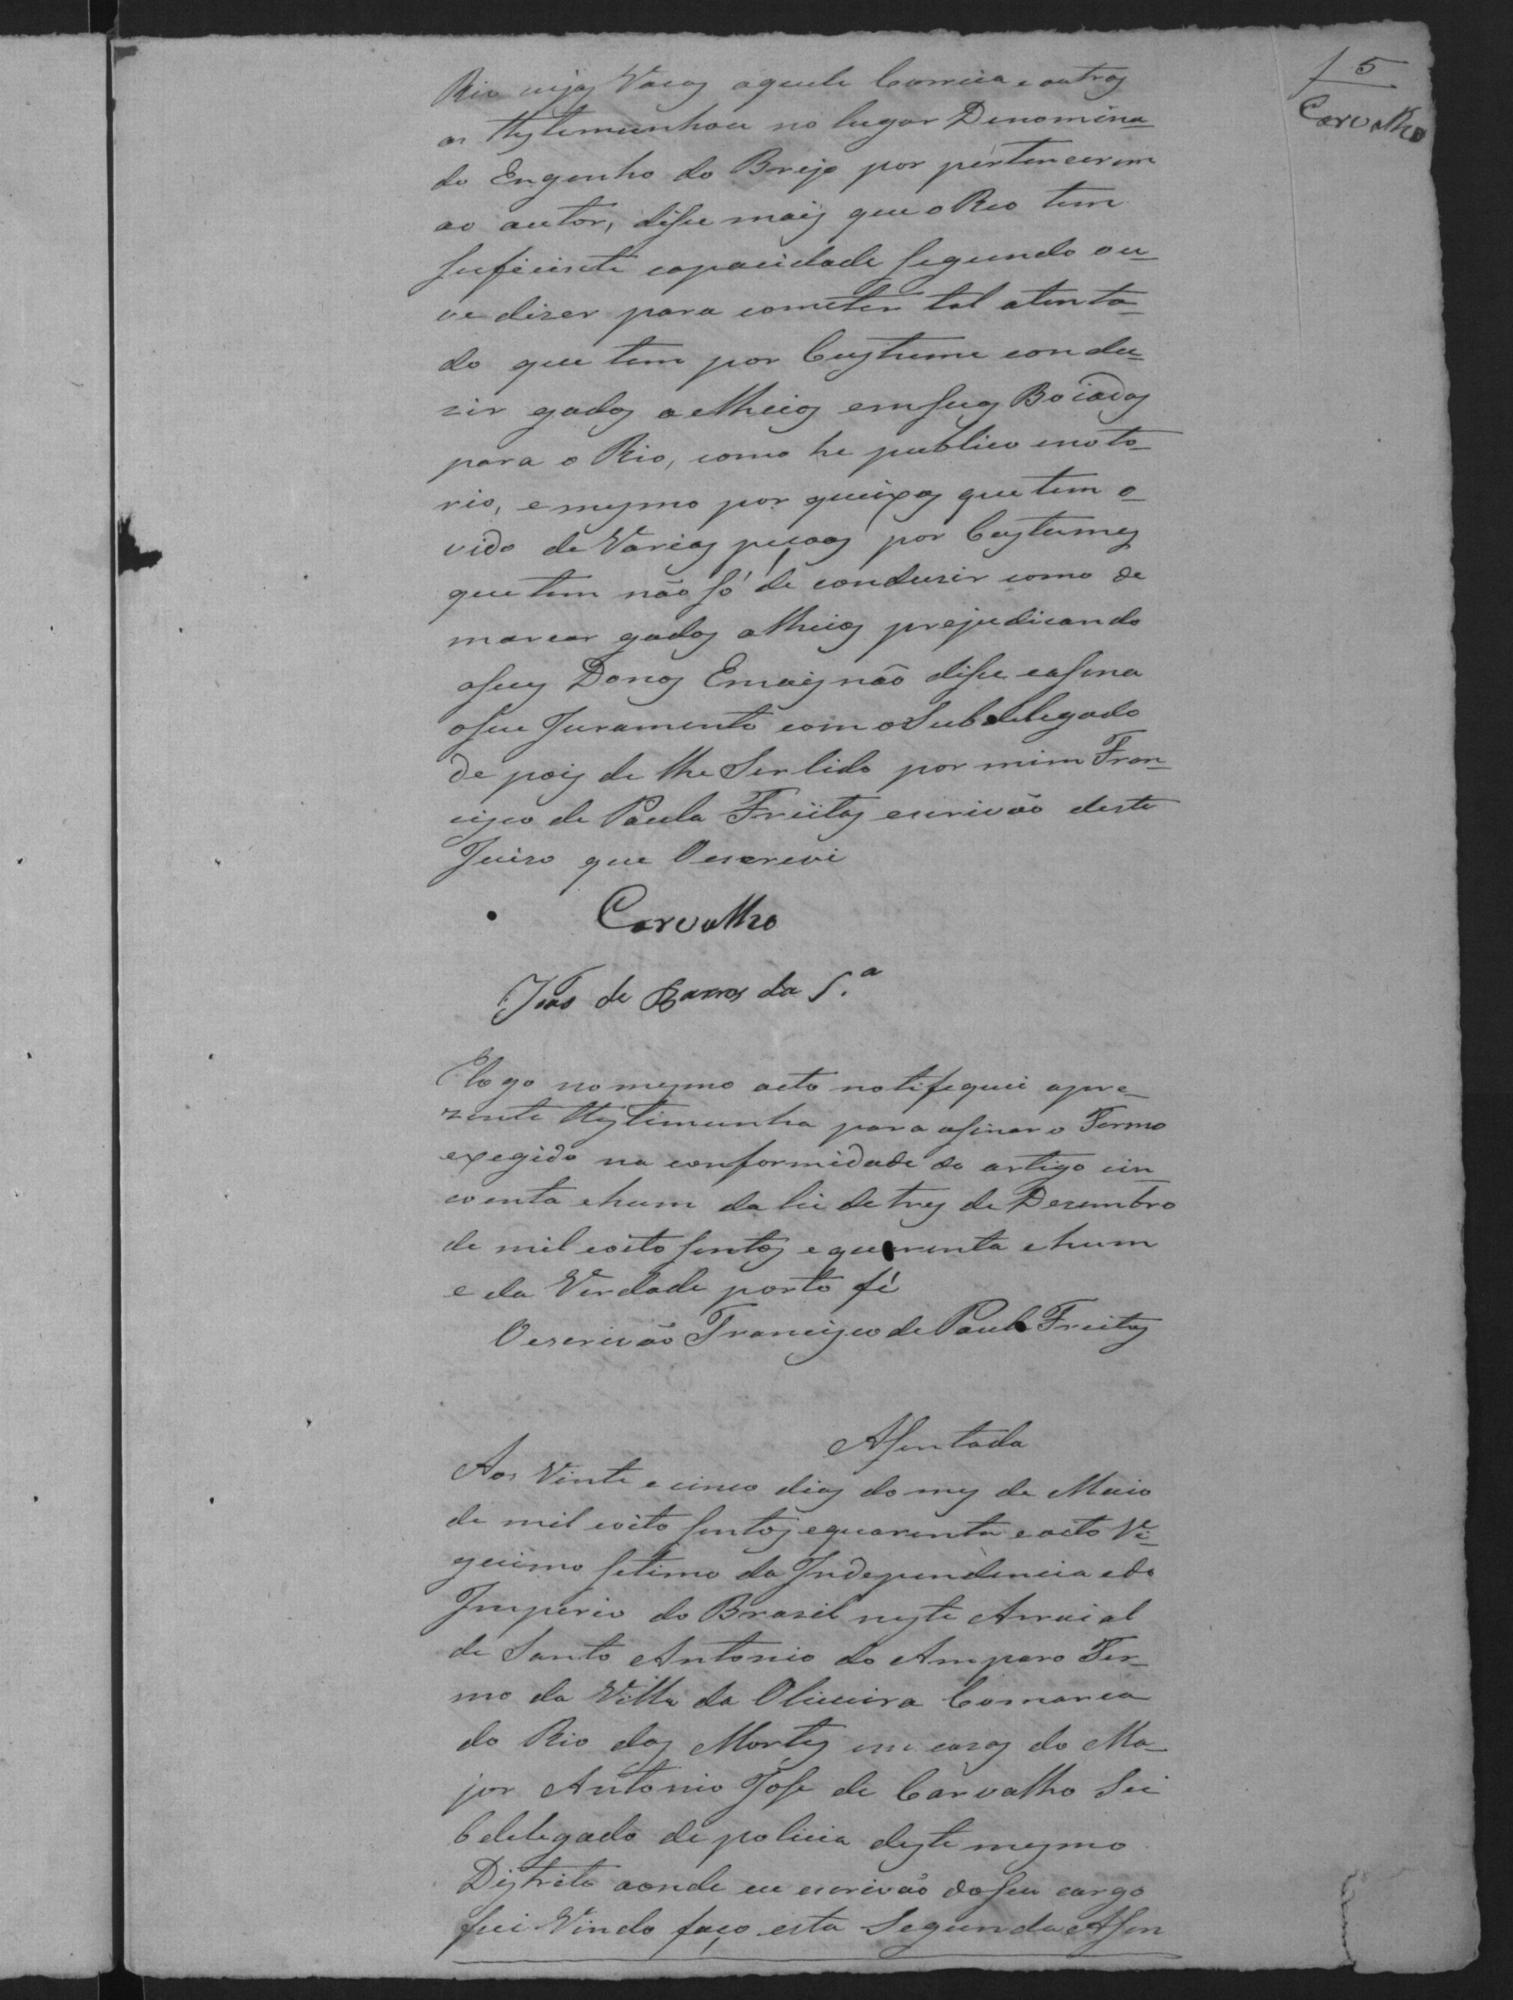 f 5
Carvalho
Rio cujas Vacas aquele Correia e outros
as testemunhou no lugar Denomina-
do Engenho do Brejo por pertencerem
ao autor, disse mais que o Reo tem
suficiente capacidade segundo ou-
ve diser para cometer tal atenta-
do que tem por Custume condu-
sir gados a lheios em suas Boiadas
para o Rio, como he publico e noto-
rio, e mesmo por queixas que tem o-
vido de Varias peçoas por Custumes
que tem não só de condusir como de
marcar gados alheios prejudicando
a seus Donos E mais não disse e asina
o seu Juramento com o Subdelegado
de pois de lhe Ser lido por mim Fran-
cisco de Paula Freitas escrivão deste
Juiso que O escrevi
Carvalho
João de Barros da S.a
E logo no mesmo acto notifequei apre-
zente testimunha para asinar o Termo
exegido na conformidade do artigo cin-
coenta e hum da lei de tres de Desembro
de mil e oito sentos e quarenta e hum
e da Verdade porto fé
O escrivão Francisco de Paula Freitas
Asentada
Aos Vinte e cinco dias do mes de Maio
de mil e oito sentos e quarenta e oito Vi-
gecimo setimo da Independencia e do
Imperio do Brasil neste Arraial
de Santo Antonio do Amparo Ter-
mo da Villa da Oliveira Comarca
do Rio das Mortes em casas do Ma-
jor Antonio Jose de Carvalho Su
bdelegado de policia deste mesmo
Distrito aonde eu escrivão do seu cargo
fui Vindo faço esta Segunda Asen